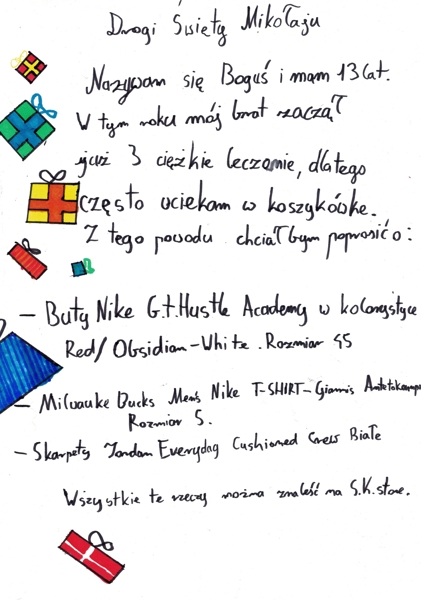 Drogi Święty Mikołaju
Nazywam się Boguś i mam 13 lat.
W tym roku mój brat zaczął
już 3 ciężkie leczenie, dlatego
często uciekam w koszykówkę.
Z tego powodu chciałbym poprosić o:
- Buty Nike G.t. Hustle Academy w kolorystyce
Red/Obsidian-White. Rozmiar 45
- Milwauke Bucks Men's Nike T-SHIRT-Giannis
Rozmiar S.
- Skarpety Jordan Everyday Cushioned Crew Białe
Wszystkie te rzeczy można znaleść na S.K.store.